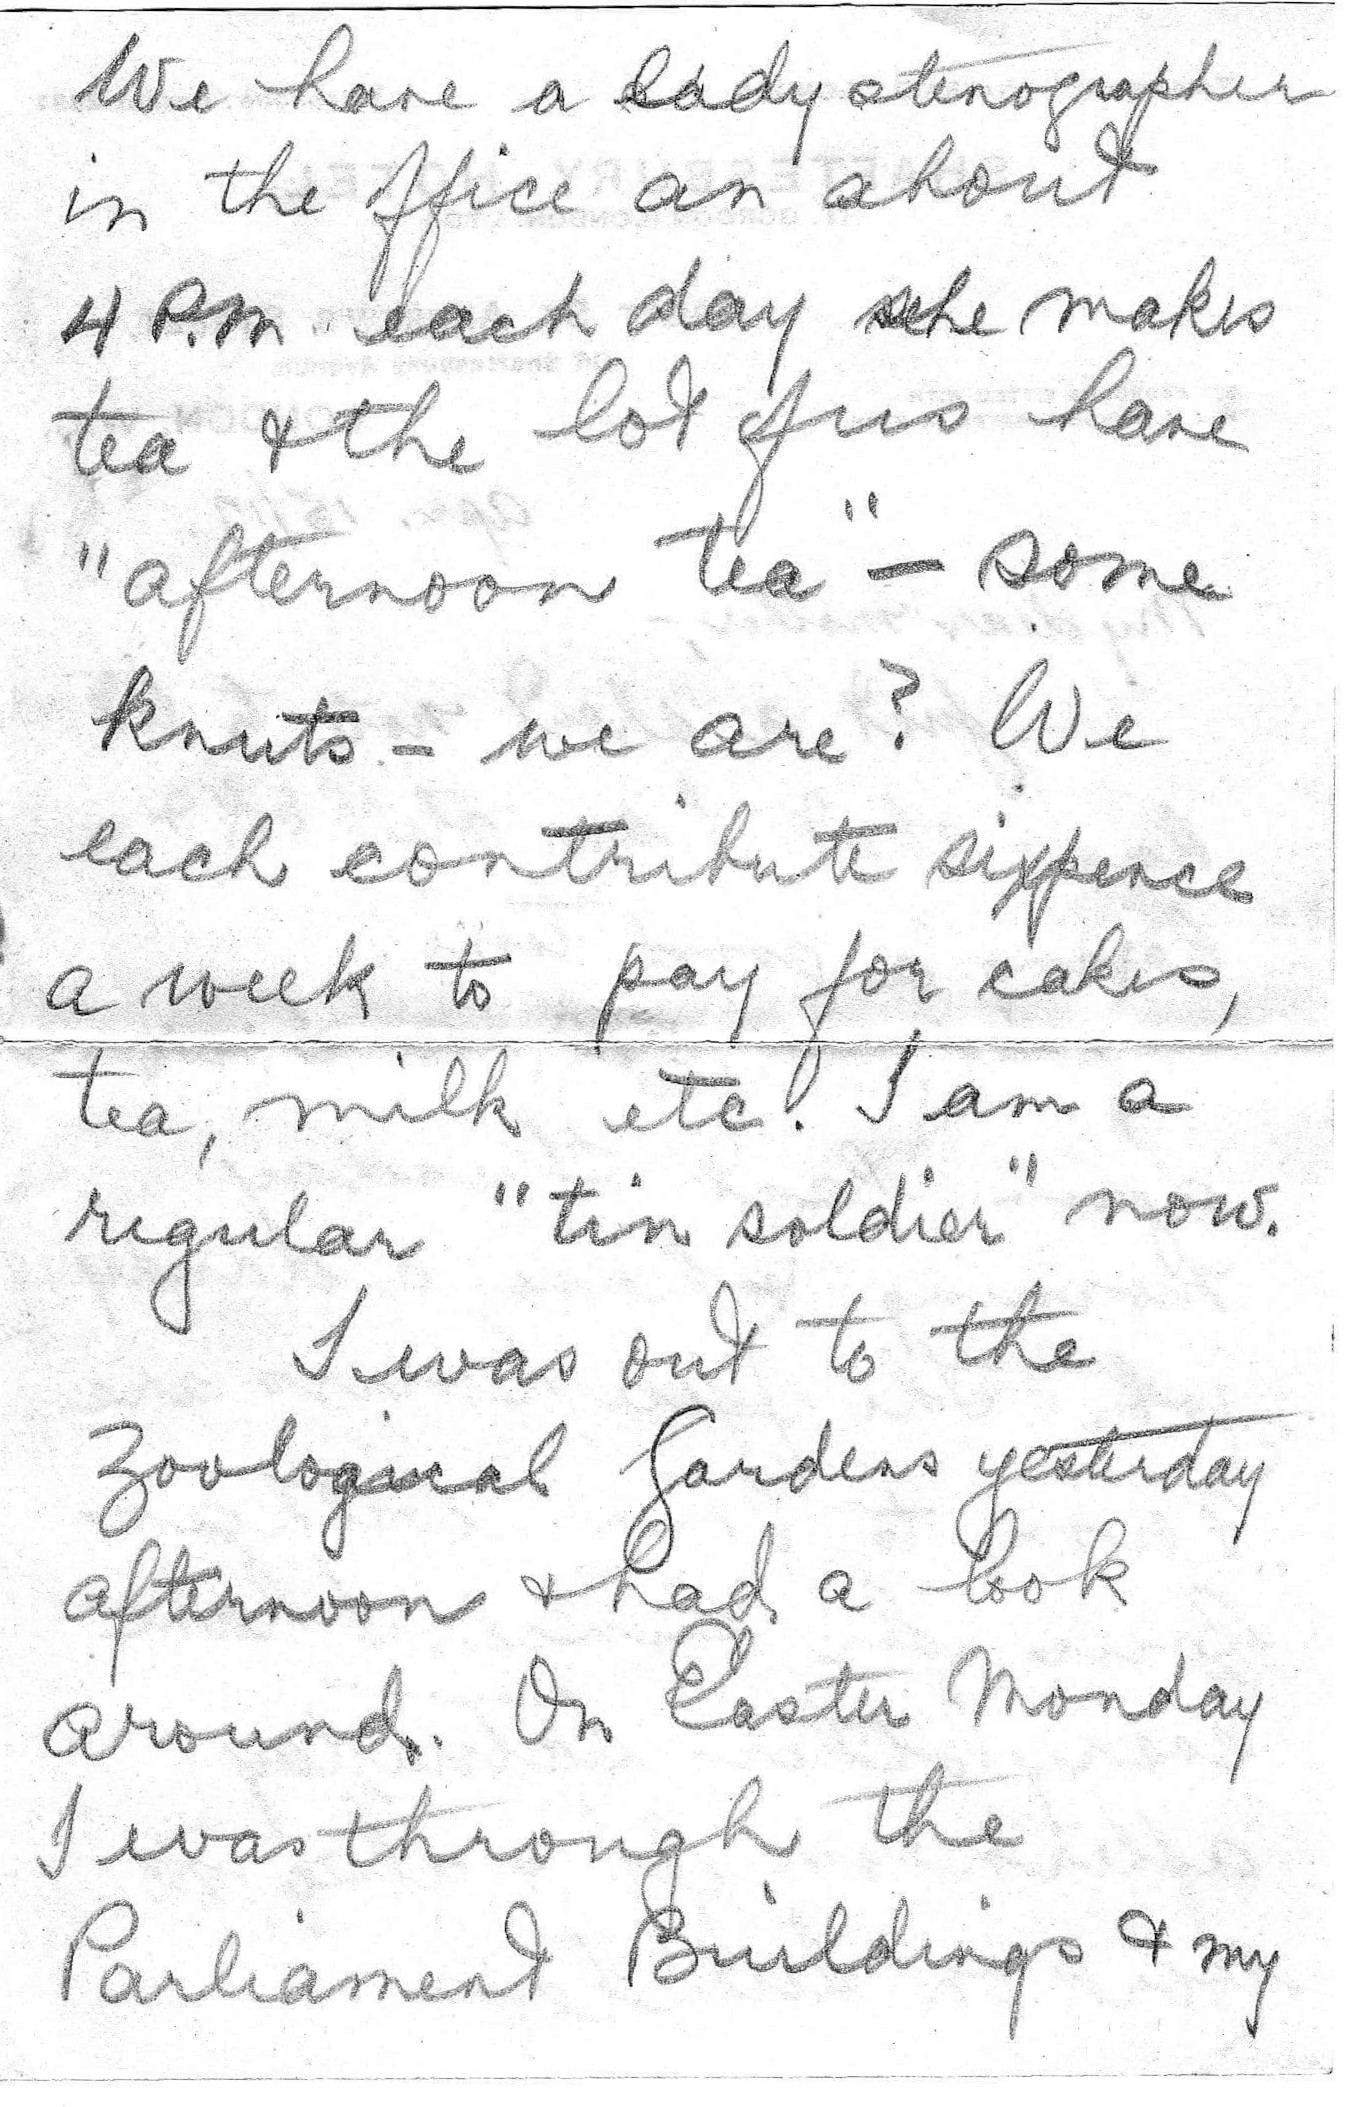 We have a lady stenographer
in the office an about
4 P.M. each day she makes
tea & the lot of us have
"afternoon tea" – some
knuts – we are? We
each contribute sixpence
a week to pay for cakes,
tea, milk etc. I am a
regular "tin soldier" now.
I was out to the
Zoological Gardens yesterday
afternoon & had a look
around. On Easter Monday
I was through the
Parliament Buildings & my